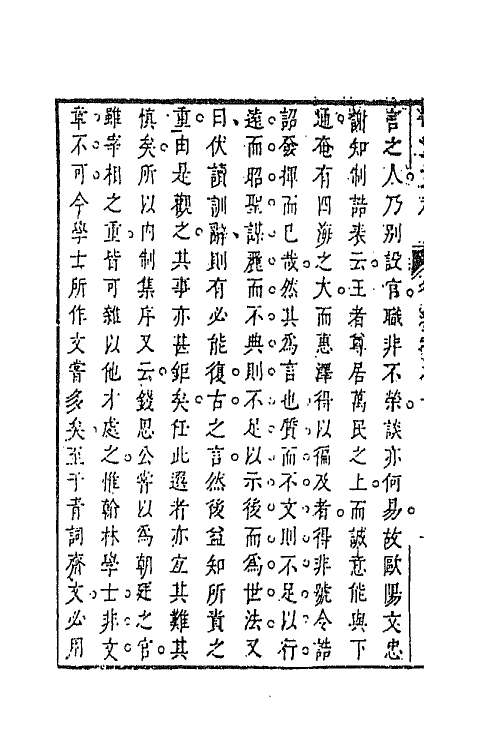 言之人乃別設官職非不榮談亦何易故歐陽文忠
謝知制誥表云王者尊居萬民之上而誠意能與下
通奄有四海之大而惠澤得以徧及者得非號令誥
詔發揮而已哉然其為言也質而不文則不足以行
遠而昭聖謀麗而不典則不足以示後而為世法又
曰伏讀訓辭則有必能復古之言然後益知所責之
重由是觀之其事亦甚鉅矣任此選者亦宜其難其
慎矣所以內制集序又云錢思公嘗以為朝廷之官
雖宰相之重皆可雜以他才處之惟翰林學士非文
章不可今學士所作文嘗多矣至于青詞齋文必用